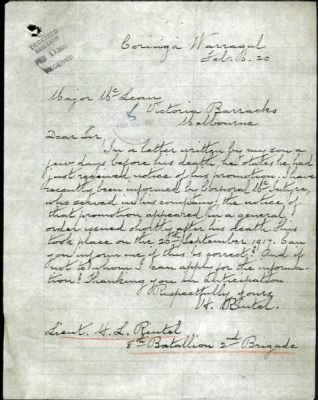 RECEIVED
Coringa Warragul
Feb. 8. 20
Major McLean
Victoria Barracks
Melbourne
Dear Sir
In a letter written by my son a
few days before his death he states he had
just received notice of his promotion. I have
recently been informed by Corporal McIntyre,
who served in his company the notice of
that promotion appeared in a general
order issued shortly after his death. This
took place on the 20th September 1917. Can
you inform me if this is correct? And if
not to whom I can apply for the informa-
tion? Thanking you in anticipation.
Respectfully yours
Lieut. H. L. Rintel
8th Batallion 2nd Brigade